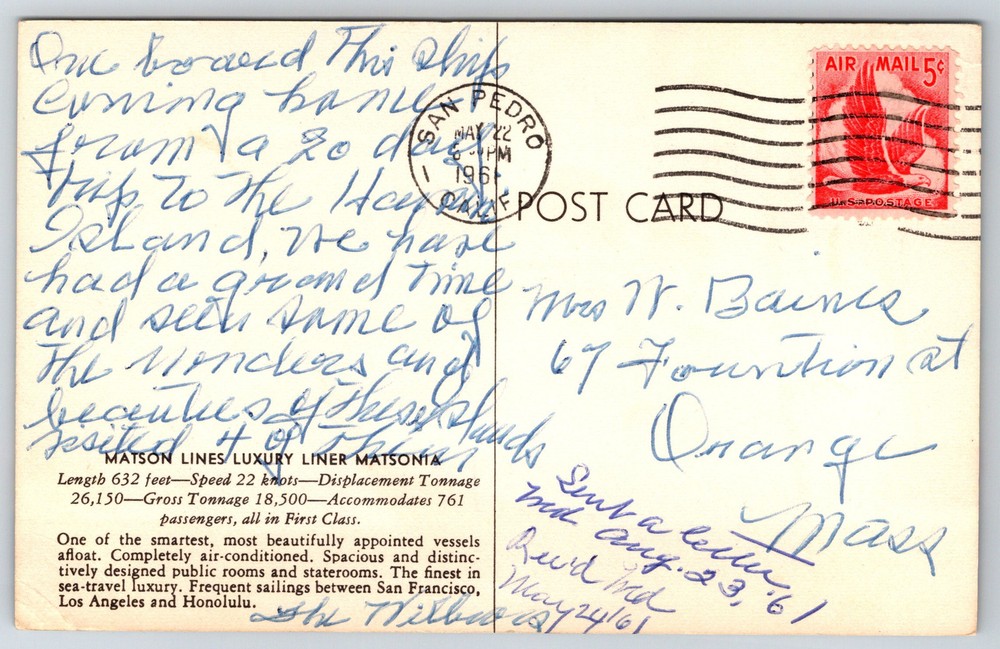 One board This Ship
Coming home
from a 20 day
trip to the
Island, we have
had a grand time
and seen some of
the wonders and
beauties of these Islands
visited 4 of them
MATSON LINES LUXURY LINER MATSONIA
Length 632 feet—Speed 22 knots—Displacement Tonnage
26,150—Gross Tonnage 18,500—Accommodates 761
passengers, all in First Class.
One of the smartest, most beautifully appointed vessels
afloat. Completely air-conditioned. Spacious and distinc-
tively designed public rooms and staterooms. The finest in
sea-travel luxury. Frequent sailings between San Francisco,
Los Angeles and Honolulu.
The
SAN PEDRO
MAY 22
PM
1961
CALIF
1
POST CARD
AIR MAIL 5¢
U.S. POSTAGE
Mrs W. Baines
67 Fountion st
Orange
Mass
Sent a letter
Md Aug. 23, '61
Rec'd Md
May 24 '61